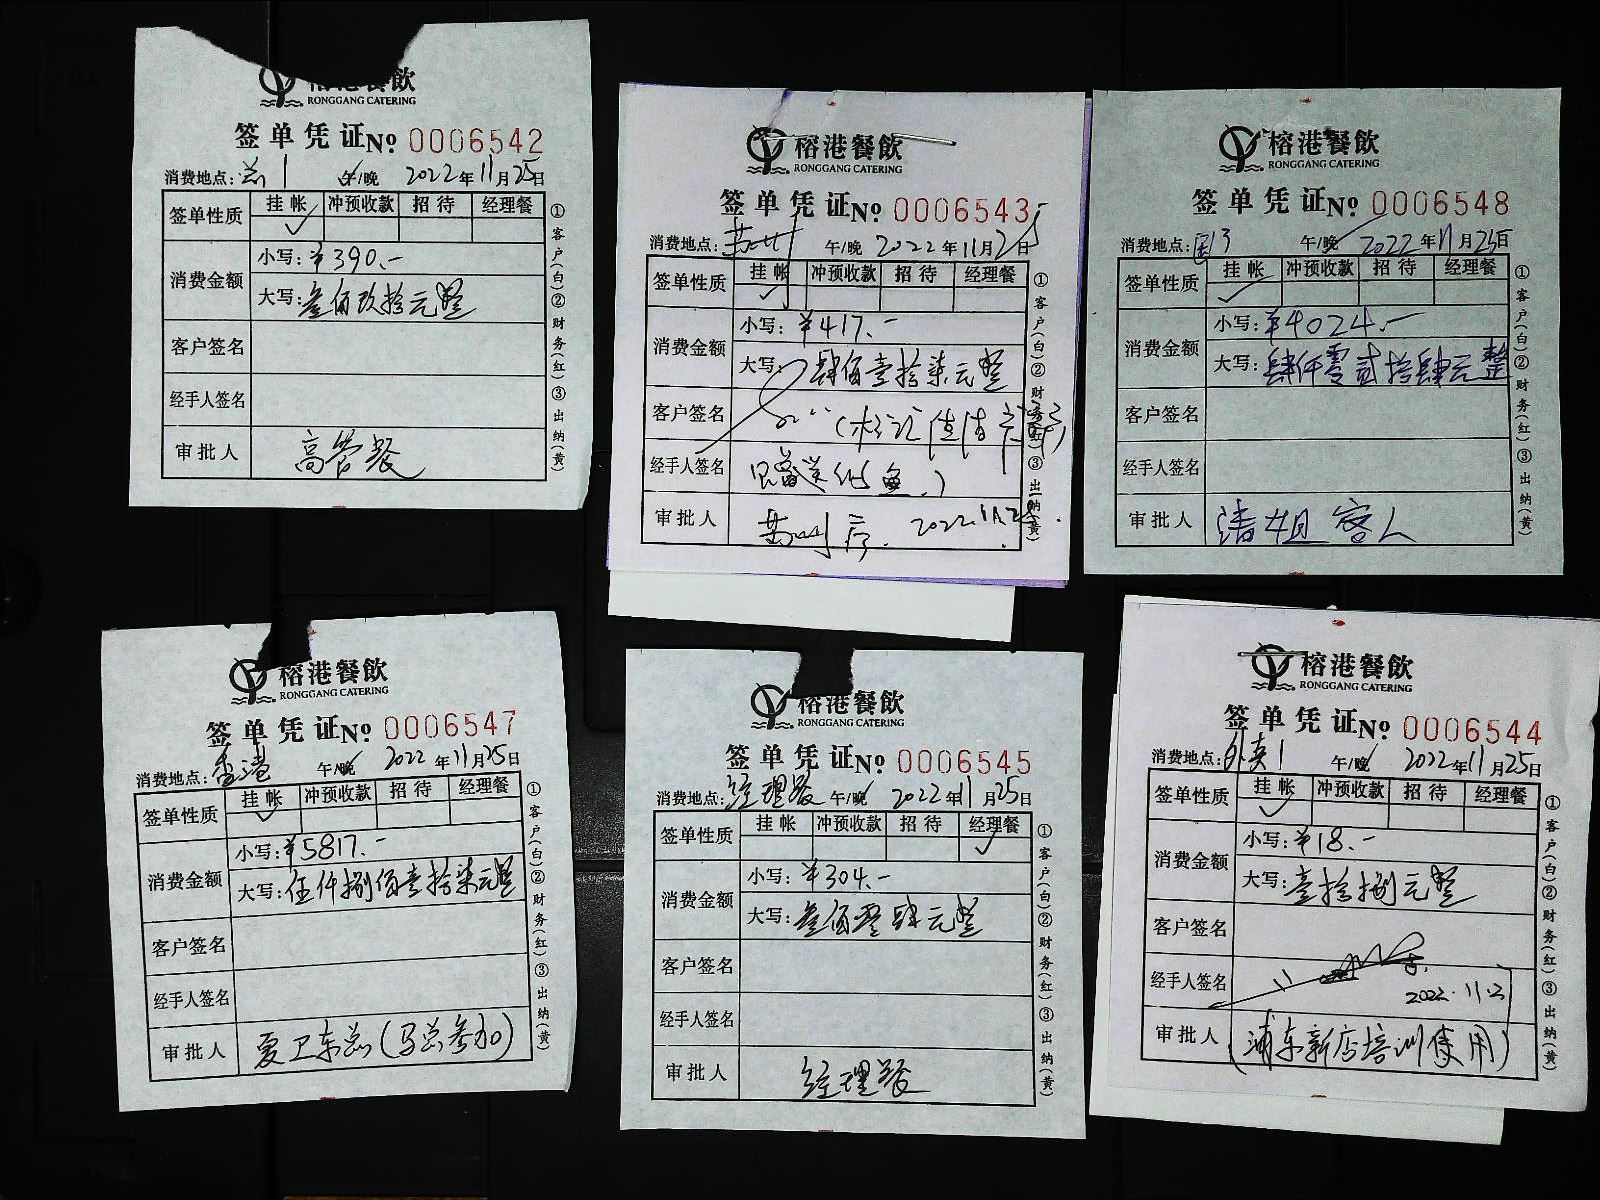 榕港餐飲
RONGGANG CATERING
签单凭证 No 0006542
消费地点: 1 午/晚 2022年11月25日
签单性质 挂帐 冲预收款 招待 经理餐
消费金额 小写:¥390.-
大写:叁佰玖拾元整
客户签名
经手人签名
审批人 高管餐
①客户(白)②财务(红)③出纳(黄)
榕港餐飲
RONGGANG CATERING
签单凭证 No 0006543
消费地点: 午/晚 2022年11月25日
签单性质 挂帐 冲预收款 招待 经理餐
消费金额 小写:¥417.-
大写:肆佰壹拾柒元整
客户签名
经手人签名
审批人 2022.11.25.
①客户(白)②财务(红)③出纳(黄)
榕港餐飲
RONGGANG CATERING
签单凭证 No 0006548
消费地点: 午/晚 2022年11月25日
签单性质 挂帐 冲预收款 招待 经理餐
消费金额 小写:¥4024.-
大写:肆仟零贰拾肆元整
客户签名
经手人签名
审批人 洁姐客人
①客户(白)②财务(红)③出纳(黄)
榕港餐飲
RONGGANG CATERING
签单凭证 No 0006547
消费地点:香港 午/晚 2022年11月25日
签单性质 挂帐 冲预收款 招待 经理餐
消费金额 小写:¥5817.-
大写:伍仟捌佰壹拾柒元整
客户签名
经手人签名
审批人 夏卫东总(马总参加)
①客户(白)②财务(红)③出纳(黄)
榕港餐飲
RONGGANG CATERING
签单凭证 No 0006545
消费地点:经理餐 午/晚 2022年11月25日
签单性质 挂帐 冲预收款 招待 经理餐
消费金额 小写:¥304.-
大写:叁佰零肆元整
客户签名
经手人签名
审批人 经理餐
①客户(白)②财务(红)③出纳(黄)
榕港餐飲
RONGGANG CATERING
签单凭证 No 0006544
消费地点:外卖1 午/晚 2022年11月25日
签单性质 挂帐 冲预收款 招待 经理餐
消费金额 小写:¥18.-
大写:壹拾捌元整
客户签名
经手人签名 2022.11.25
审批人 (浦东新店培训使用)
①客户(白)②财务(红)③出纳(黄)